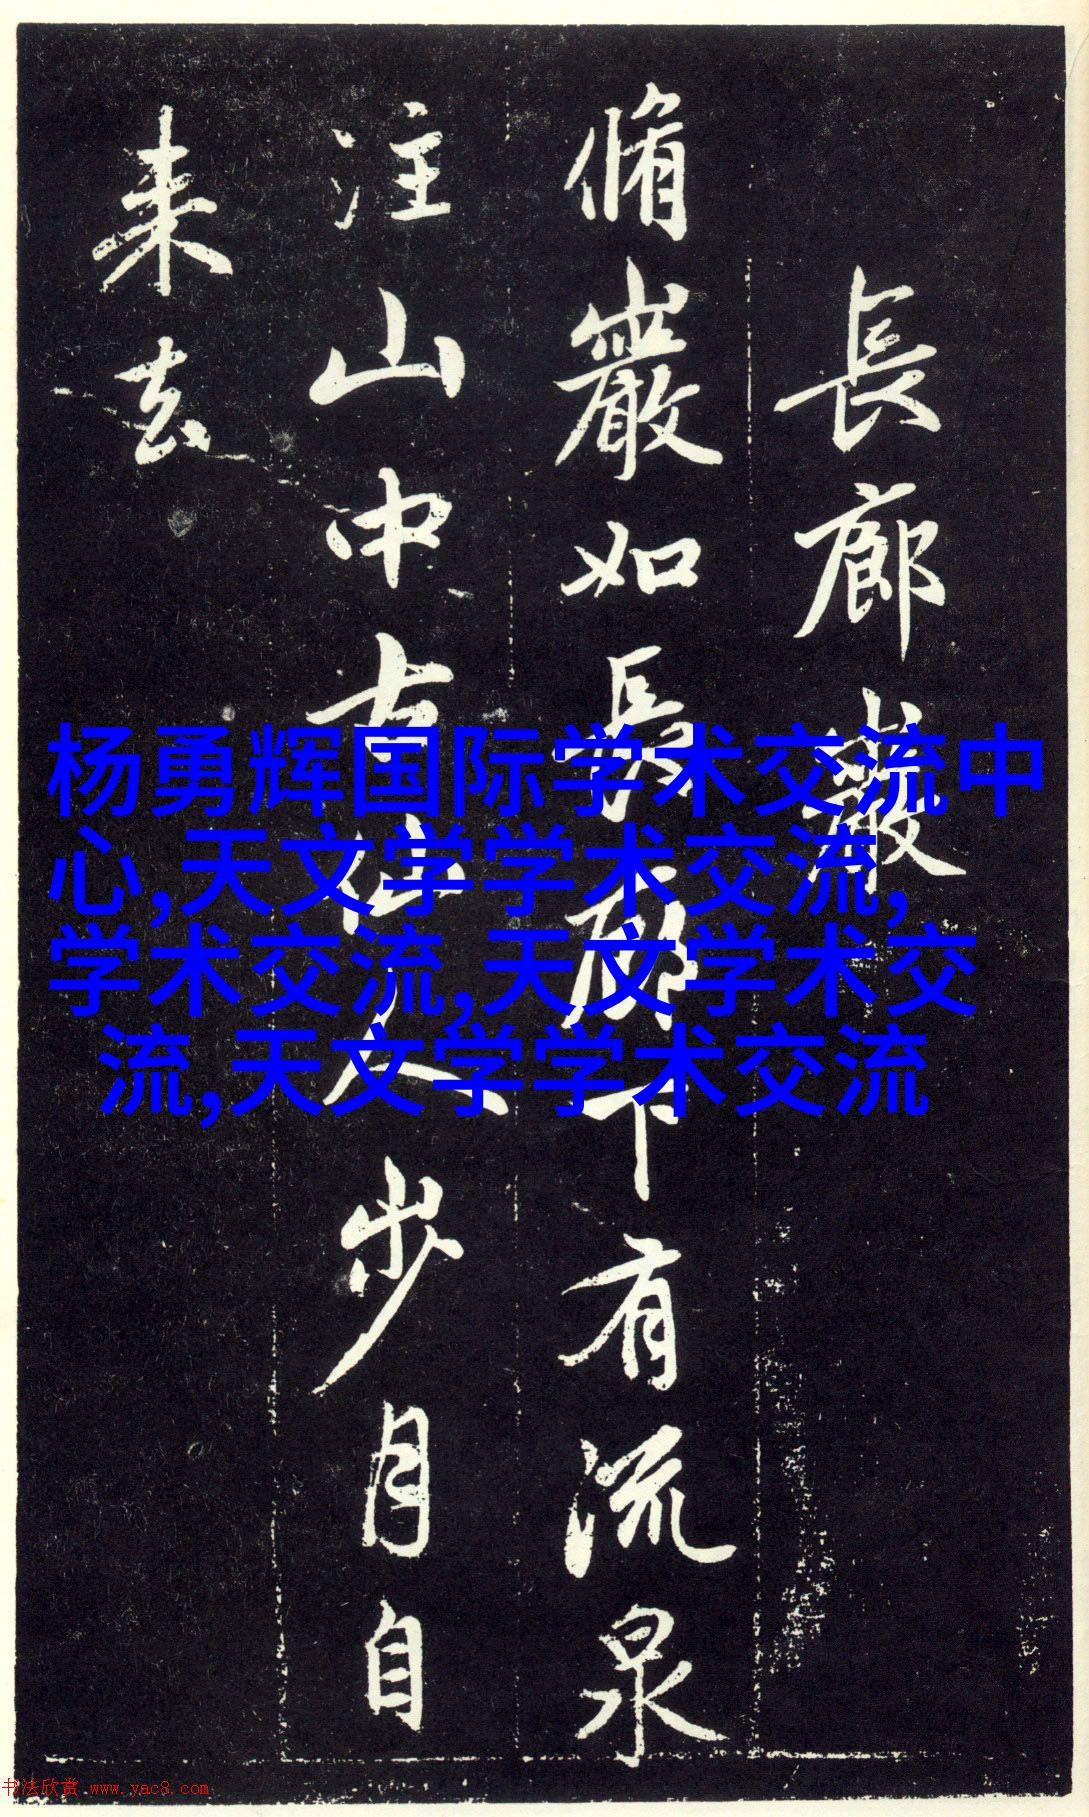 長廊巖
脩巖如長廊下有流泉
注山中古仙人步月自
来去
杨勇辉国际学术交流中
心,天文学学术交流,
学术交流,天文学术交
流,天文学学术交流
书法欣赏 www.yac8.com